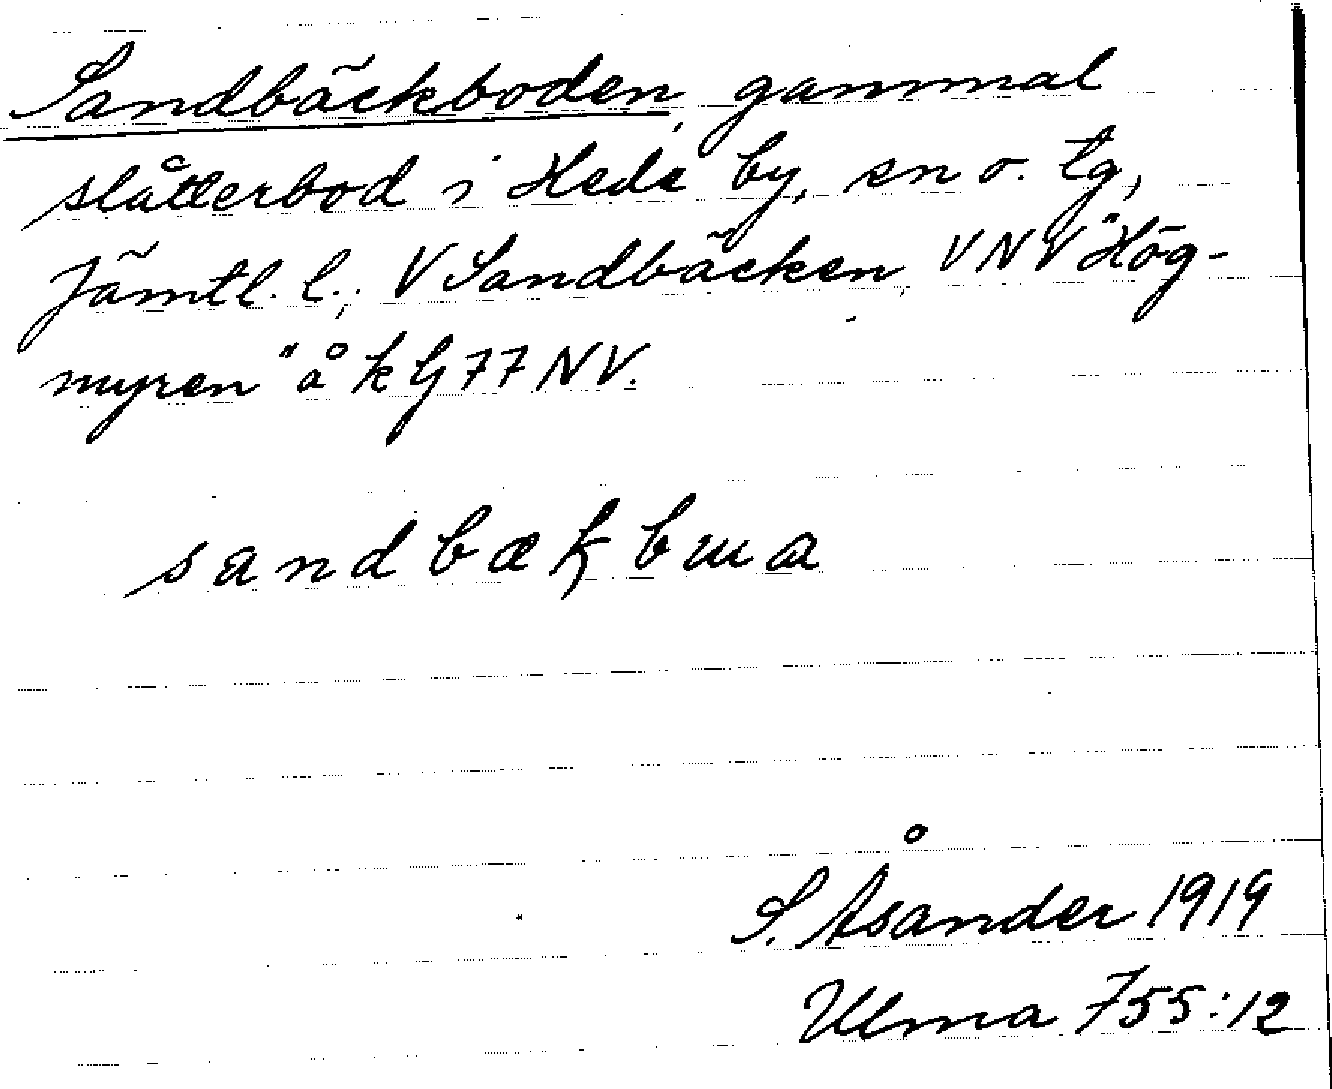 Sandbäckboden, gammal
slåtterbod i Hede by, sn o. tg,
Jämtl. l.; V Sandbäcken, VNV "Hög-
myren" å kbl 77 NV.
sandbækbɯa
S. Åsander 1919
Ulma 755:12